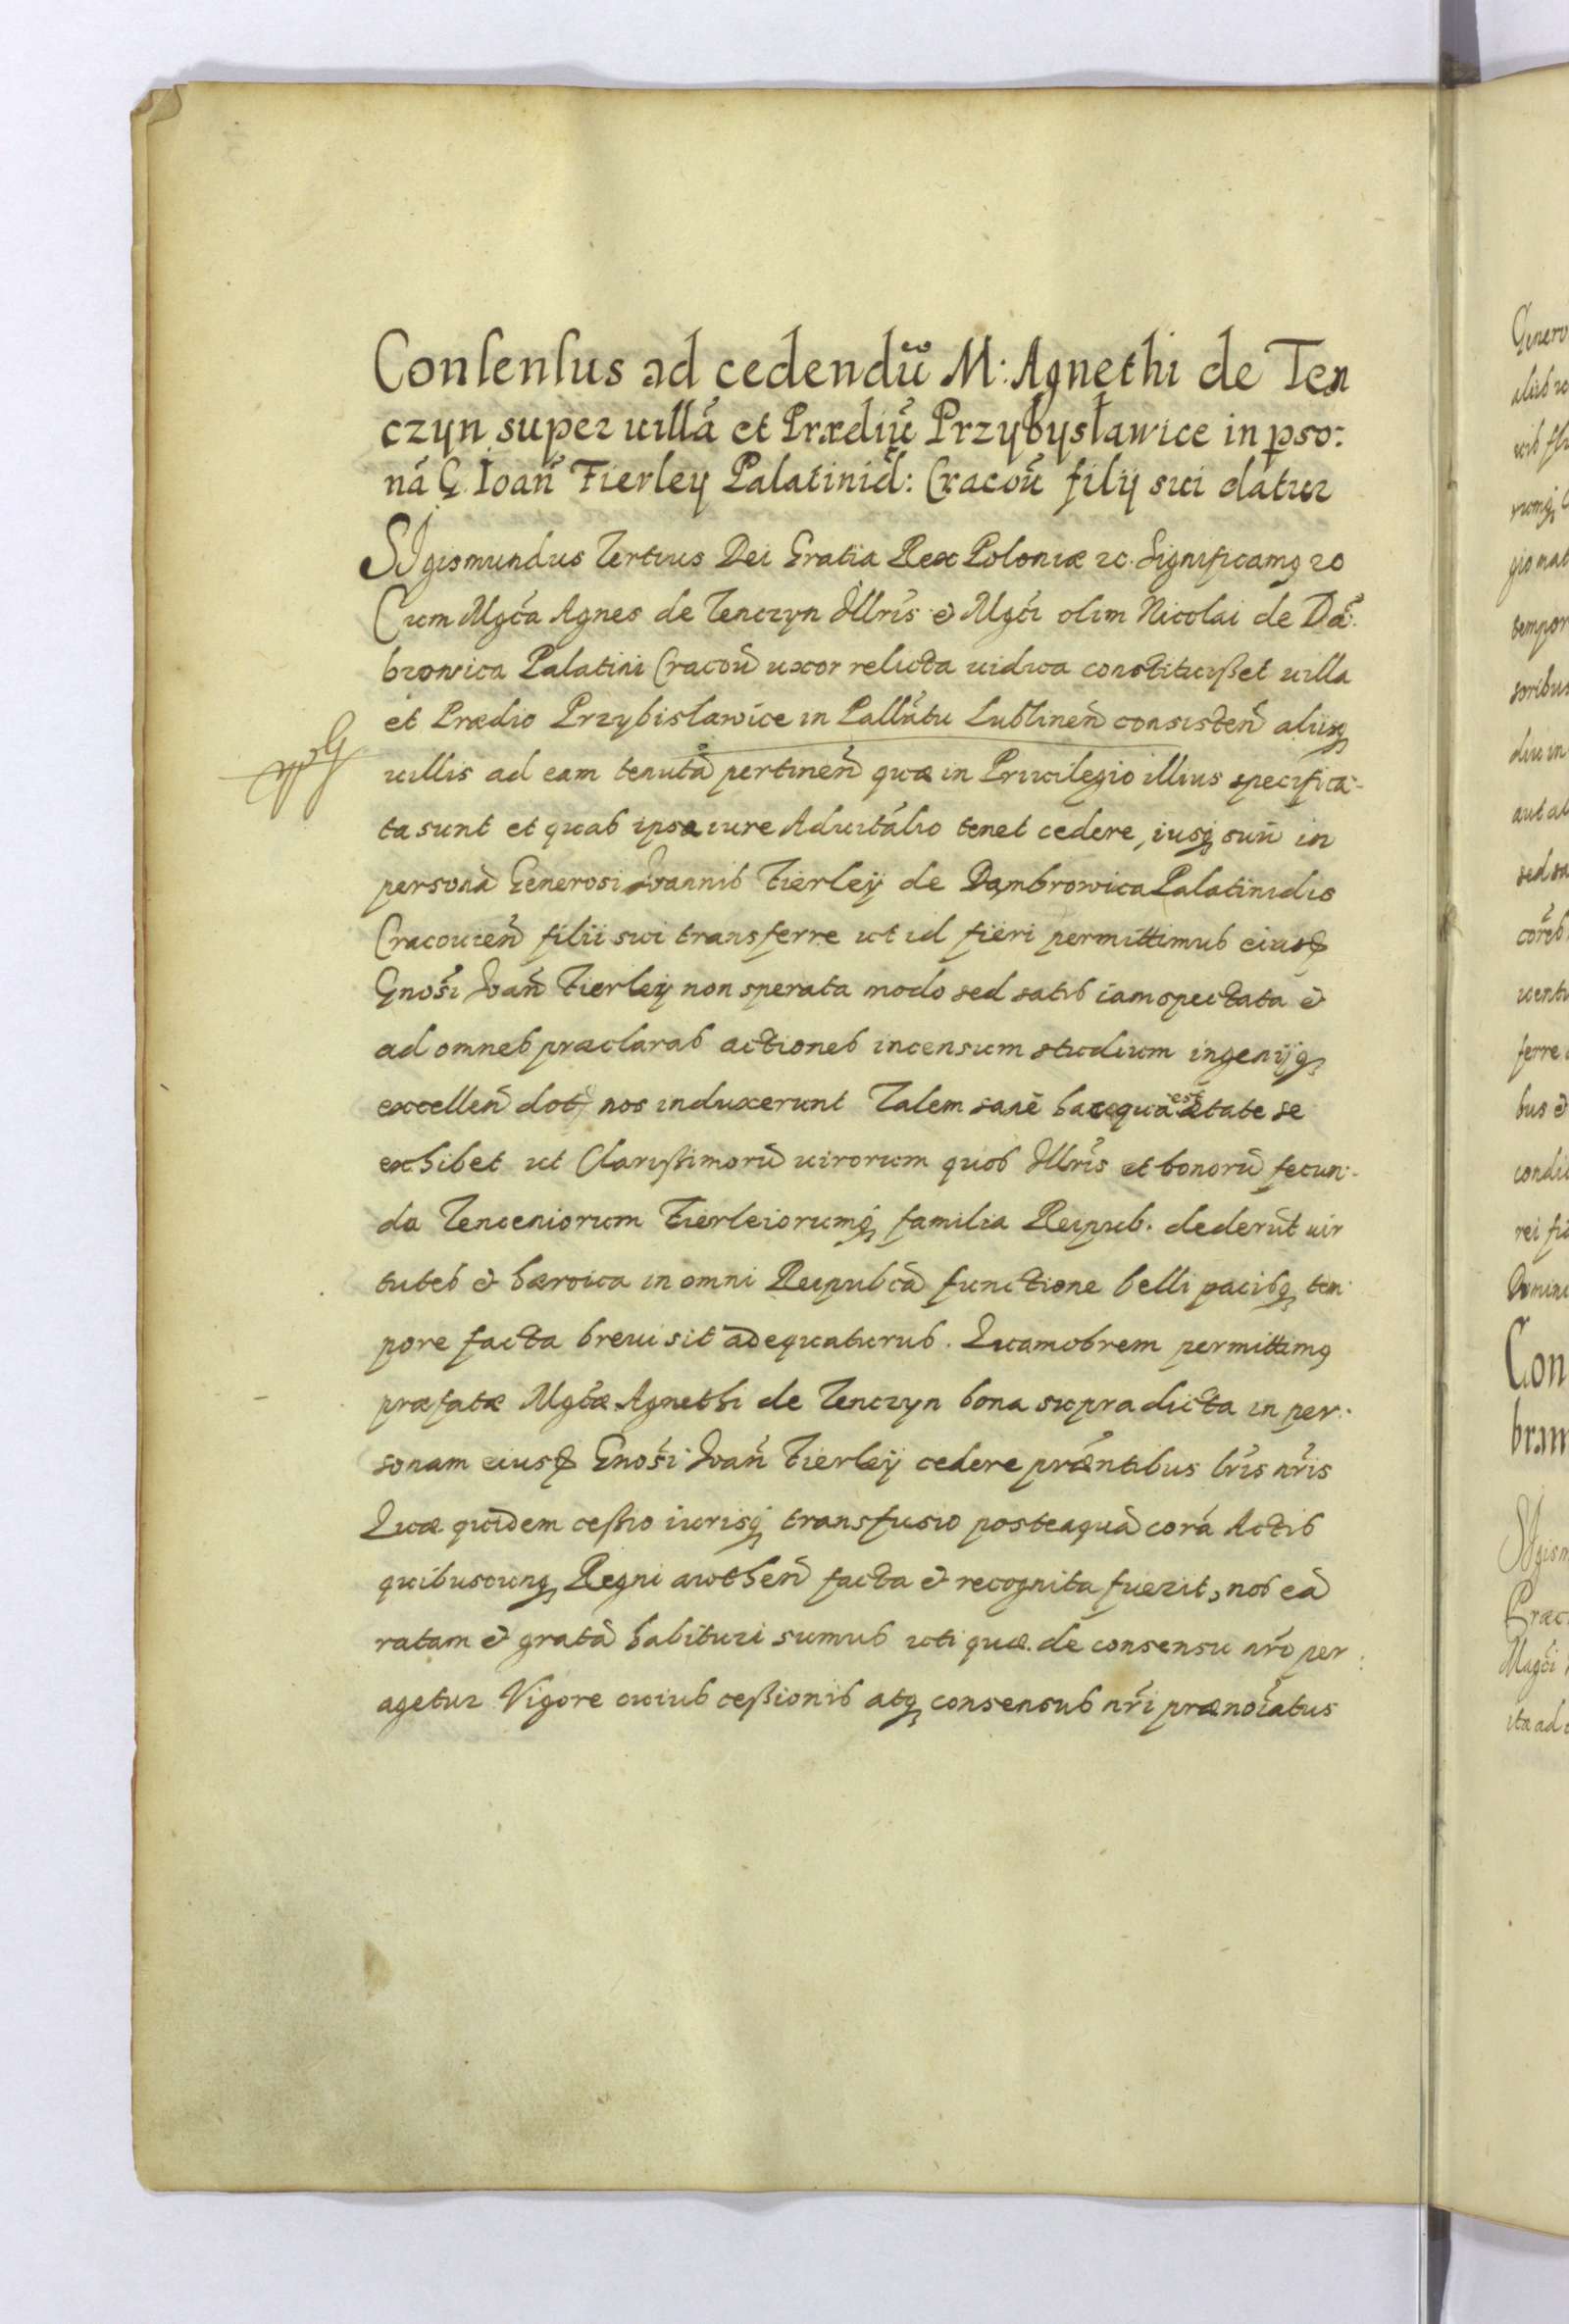 Consensus ad cedendũ M: Agnethi de Ten
czyn super uillã et Prædiũ Przybysławice in pso:
nã G. Ioañ Fierley Palatinid: Cracoũ filij sui datur
SIgismundus Tertius Dei Gratia Rex Poloniæ ꝛc. Significamꝰ ꝛc
Cum Mgca Agnes de Tenczyn Illris et Mgci olim Nicolai de Dã:
browica Palatini Cracoũ uxor relicta uidua constituißet uilla
et Prædio Przybislawice in Pallãtu Lublineñ consisteñ alijsqꝫ
uillis ad eam tenutã pertineñ quæ in Priuilegio illius specifica-
ta sunt et quas ipsa iure Aduitalio tenet cedere, iusqꝫ suũ in
personã Generosi Joannis Fierleÿ de Dambrowica Palatinidis
Cracouieñ filii sui transferre ut id fieri permittimus eiusd
Gnosi Joañ Fierleÿ non sperata modo sed satis iam spectata et
ad omnes præclaras actiones incensum studium ingenijqꝫ
excelleñ dot nos induxerunt Talem sanè hac qua est ætate se
exhibet ut Clarißimorũ uirorum quos Illris et bonorũ fecun-
da Tenceniorum Fierleiorumqꝫ familia Reipub. dederũt uir
tutes et hæroica in omni Reipubcã functione belli pacisqꝫ tem
pore facta breui sit adequaturus. Quamobrem permittimꝰ
præfatæ Mgcæ Agnethi de Tenczyn bona supradicta in per:
sonam eiusd Gnosi Joañ Fierleÿ cedere præntibus lris nris
Quæ quidem ceßio iurisqꝫ transfusio posteaquã corã Actis
quibuscunqꝫ Regni autheñ facta et recognita fuerit, nos eã
ratam et gratã habituri sumus uti quæ de consensu nro per
agetur Vigore cuius ceßionis atqꝫ consensus nri prænoiatus